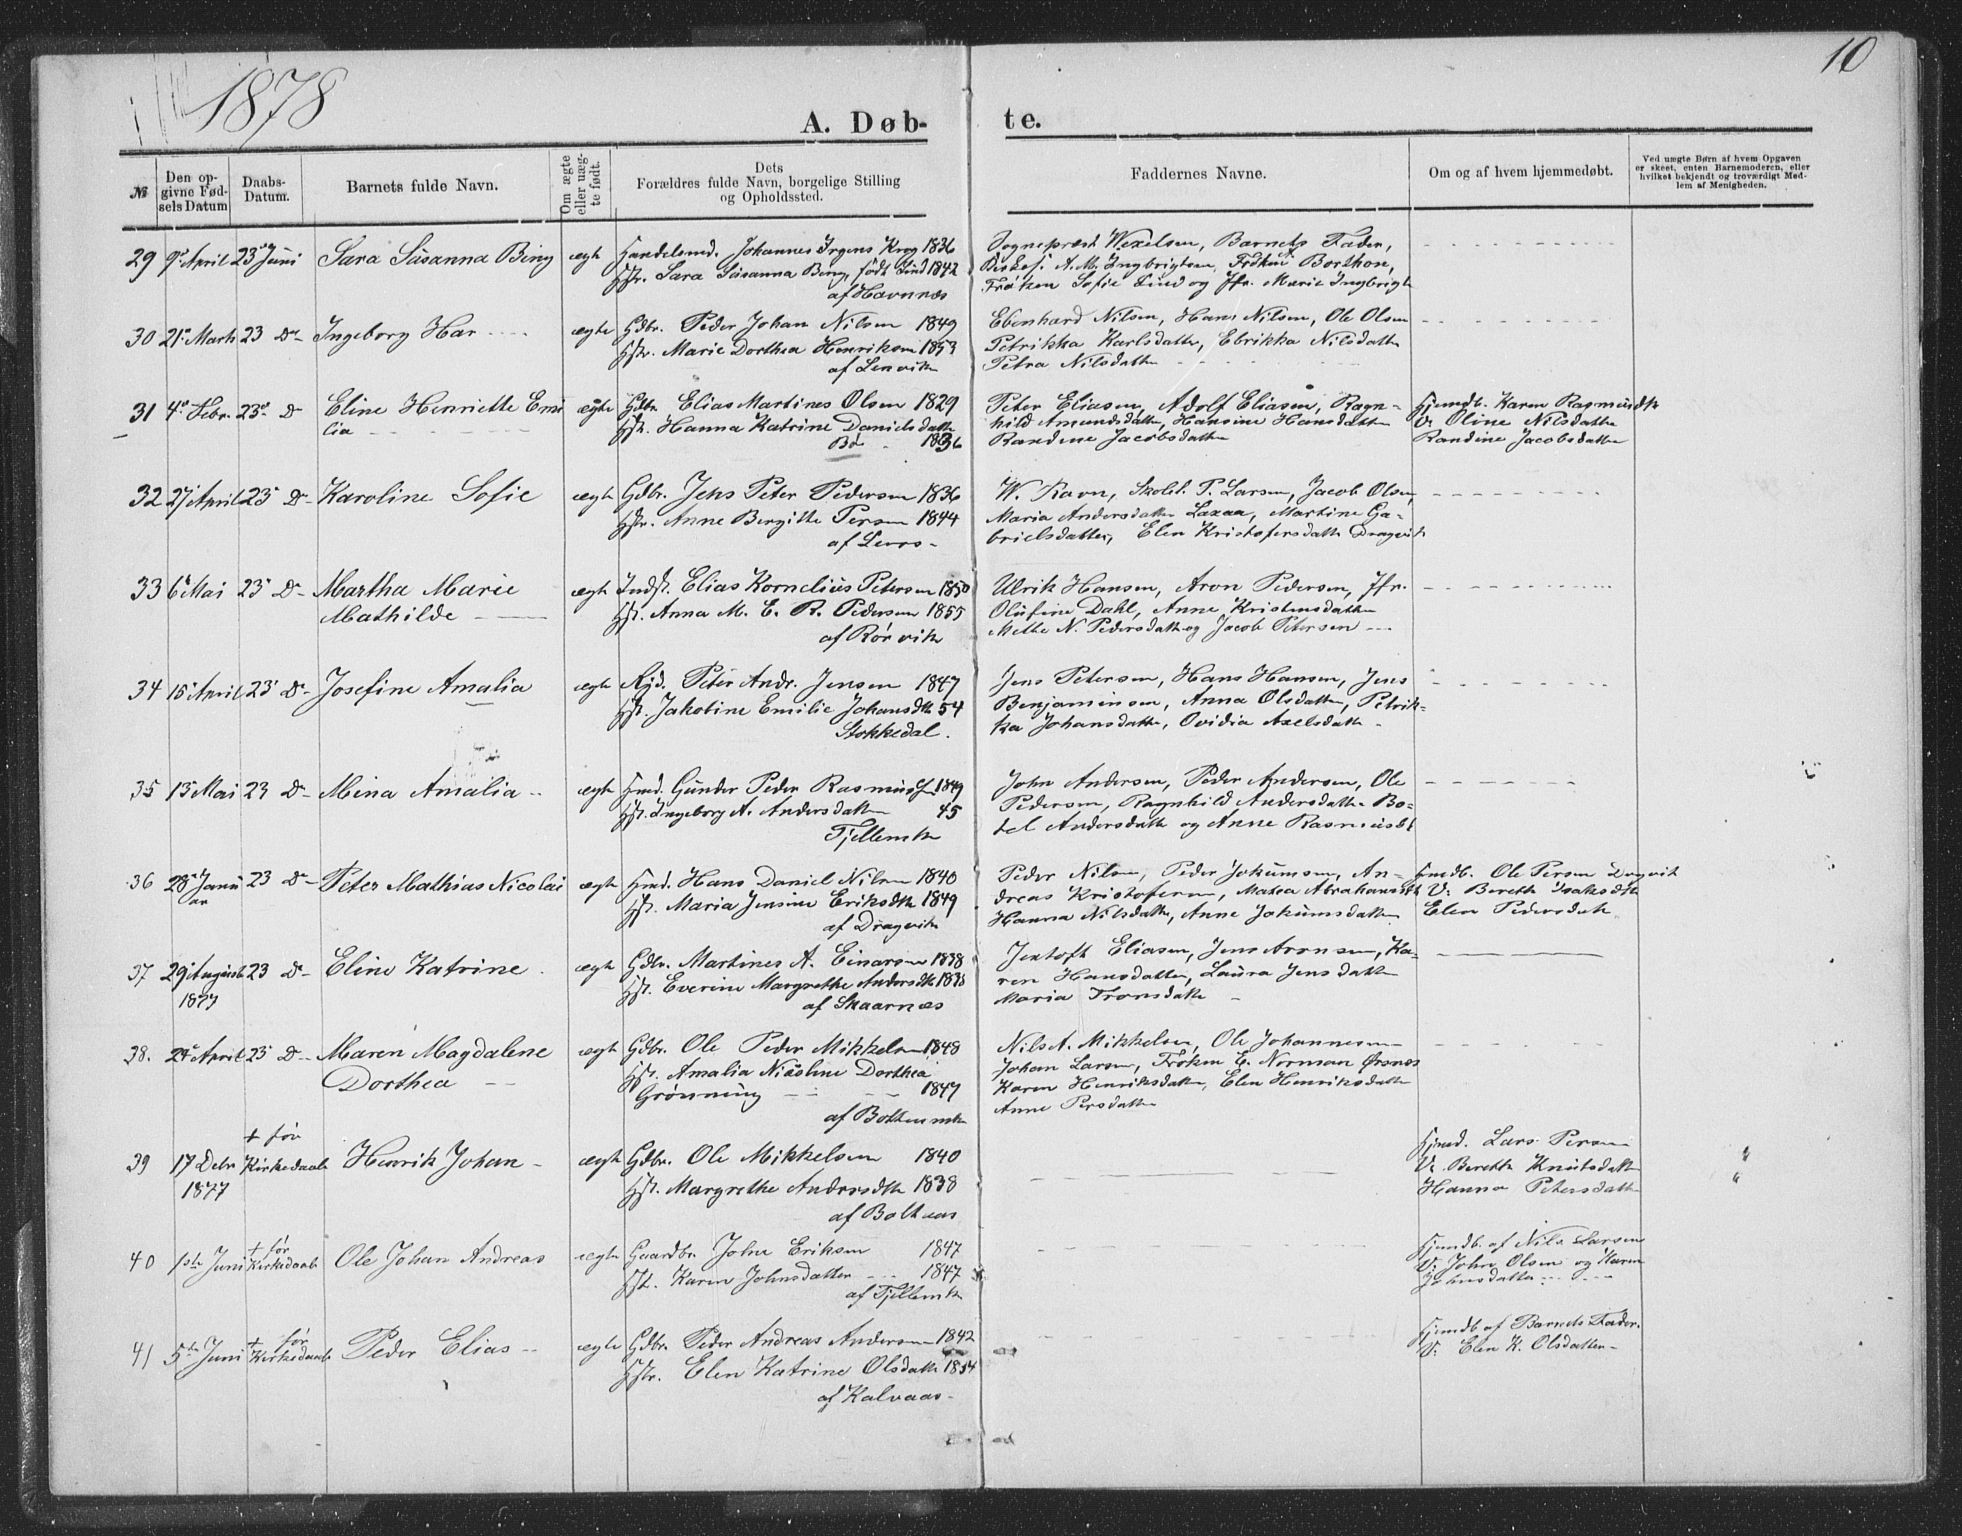 1878
10
A. Døb-
te.
№
Den op-
givne Fød-
sels Datum
Daabs-
Datum.
Barnets fulde Navn.
Om ægte
eller uæg-
te født.
Dets
Forældres fulde Navn, borgelige Stilling
og Opholdssted.
Faddernes Navne.
Om og af hvem hjemmedøbt.
Ved uægte Børn af hvem Opgaven
er skeet, enten Barnemoderen, eller
hvilket bekjendt og troværdigt Med-
lem af Menigheden.
29 9de April 23de Juni Sara Susanna Bing ægte Handelsmd. Johannes Irgens Krog 1836
Hstr. Sara Susanna Bing, født Lund 1842
af Havnnæs
Sognepræst Wexelsen, Barnets Fader,
A. M. Ingbrigtsen, Frøken Borthon,
Frøken Sofie Lund og Jfr. Marie Ingbrigts
30 21de Marts 23 Ds Ingeborg Har ægte Gdbr. Peder Johan Nilsen 1849
Hstr. Marie Dorthea Henriksen 1853
af Lenvik
Ebenhard Nilsen, Hans Nilsen, Ole Olsen
Petrikka Karlsdatter, Ebrikka Nilsdatter
Petra Nilsdatter
31 4de Febr. 23de Ds Eline Henriette Emi
lia
ægte Gdbr. Elias Martines Olsen 1829
Hstr. Hanna Katrine Daniels datter
Bø 1836
Peter Eliasen, Adolf Eliasen, Ragn-
hild Amundsdatter, Hansine Hansdatter
Randine Jacobsdatter
Hjemdb. Karen Rasmusdtr
V. Oline Nilsdatter
Randine Jacobsdatter
32 27de April 23de Ds Karoline Sofie ægte Gdbr. Jens Peter Pedersen 1836
Hstr. Anne Bergitte Persen 1844
W. Ravn, Skolel. P. Larsen, Jacob Olsen,
Maria Andersdatter Laxaa, Martine Ga-
brielsdatter, Elen Kristofersdatter Dragvik
33 6te Mai 23de Ds Martha Marie
Mathilde
ægte Indst. Elias Kornelius Petersen 1850
Hst. Anna M. E. R. Pedersen 1855
af Rørvik
Ulrik Hansen, Aron Pedersen, Jfr.
Olufine Dahl, Anne Kristensdatter
Mette N. Pedersdatter og Jacob Petersen
34 15de April 23de Ds Josefine Amalia ægte Peter Andr. Jensen 1847
Hst. Jakobine Emilie Johansdtr 54
Stokkedal.
Jens Petersen, Hans Hansen, Jens
Benjaminsen, Anna Olsdatter, Petrik-
ka Johansdatter, Ovidia Axelsdatter
35 13de Mai 23 Ds Mina Amalia ægte Hmd. Gunder Peder Rasmussen 1849
Hst. Ingeborg A. Andersdatter 45
Fjellemk
John Andersen, Peder Andersen, Ole
Pedersen, Ragnhild Andersdatter Bo-
tel Andersdatter og Anne Rasmusdt
36 28de Janu
ar
23 Ds Peter Mathias Nicolai ægte Hmd. Hans Daniel Nilsen 1840
Hst. Maria Jensine Eriksdtr 1849
af Dragvik
Peder Nilsen, Peder Jokumsen, An-
dreas Kristofersen, Matea Abrahamsdtr
Hanna Nilsdatter, Anne Jokumsdatter
Hjmdb. Ole Persen Dragvik
V. Bereth Isaksdtr
Elen Pedersdatter
37 29de August
1877
23 Ds Eline Katrine ægte Gdbr. Martines A. Einarsen 1838
Hst. Everine Margrethe Andersdtr 1838
af Skaarnæs
Jentoft Eliasen, Jens Aronsen, Ka-
ren Hansdatter, Laura Jensdatter
Maria Tronsdatter
38. 24de April 23de Ds Maren Magdalene
Dorthea
ægte Gdbr. Ole Peder Mikkelsen 1848
Hst. Amalia Nicoline Dorthea
Grønning 1847
Nils A. Mikkelsen, Ole Johannesen
Johan Larsen, Frøken E. Norman Ørsnes
Karen Henriksdatter, Elen Henriksdatter
Anne Persdatter
39 17 Debr
1877
+ før
Kirkedaab
Henrik Johan ægte Gdbr. Ole Mikkelsen 1840
Hst. Margrethe Andersdtr 1838
af Boltaas
Hjmd. Lars Persen
V. Bereth Knutsdatter
Hanna Petersdatter
40 1ste Juni + før
Kirkedaab
Ole Johan Andreas ægte Gaardbr. John Eriksen 1847
Hst. Karen Johnsdatter 1847
af Fjellemk
Hjmdb. af Nils Larsen
V. John Olsen og Karen
Johnsdatter
41 5te Juni + før
Kirkedaab
Peder Elias ægte Gdbr. Peder Andreas Andersen 1842
Hstr. Elen Katrine Olsdatter 1854
af Kalvaas
Hjemdb af Barnets Fader.
V. Elen K. Olsdatter